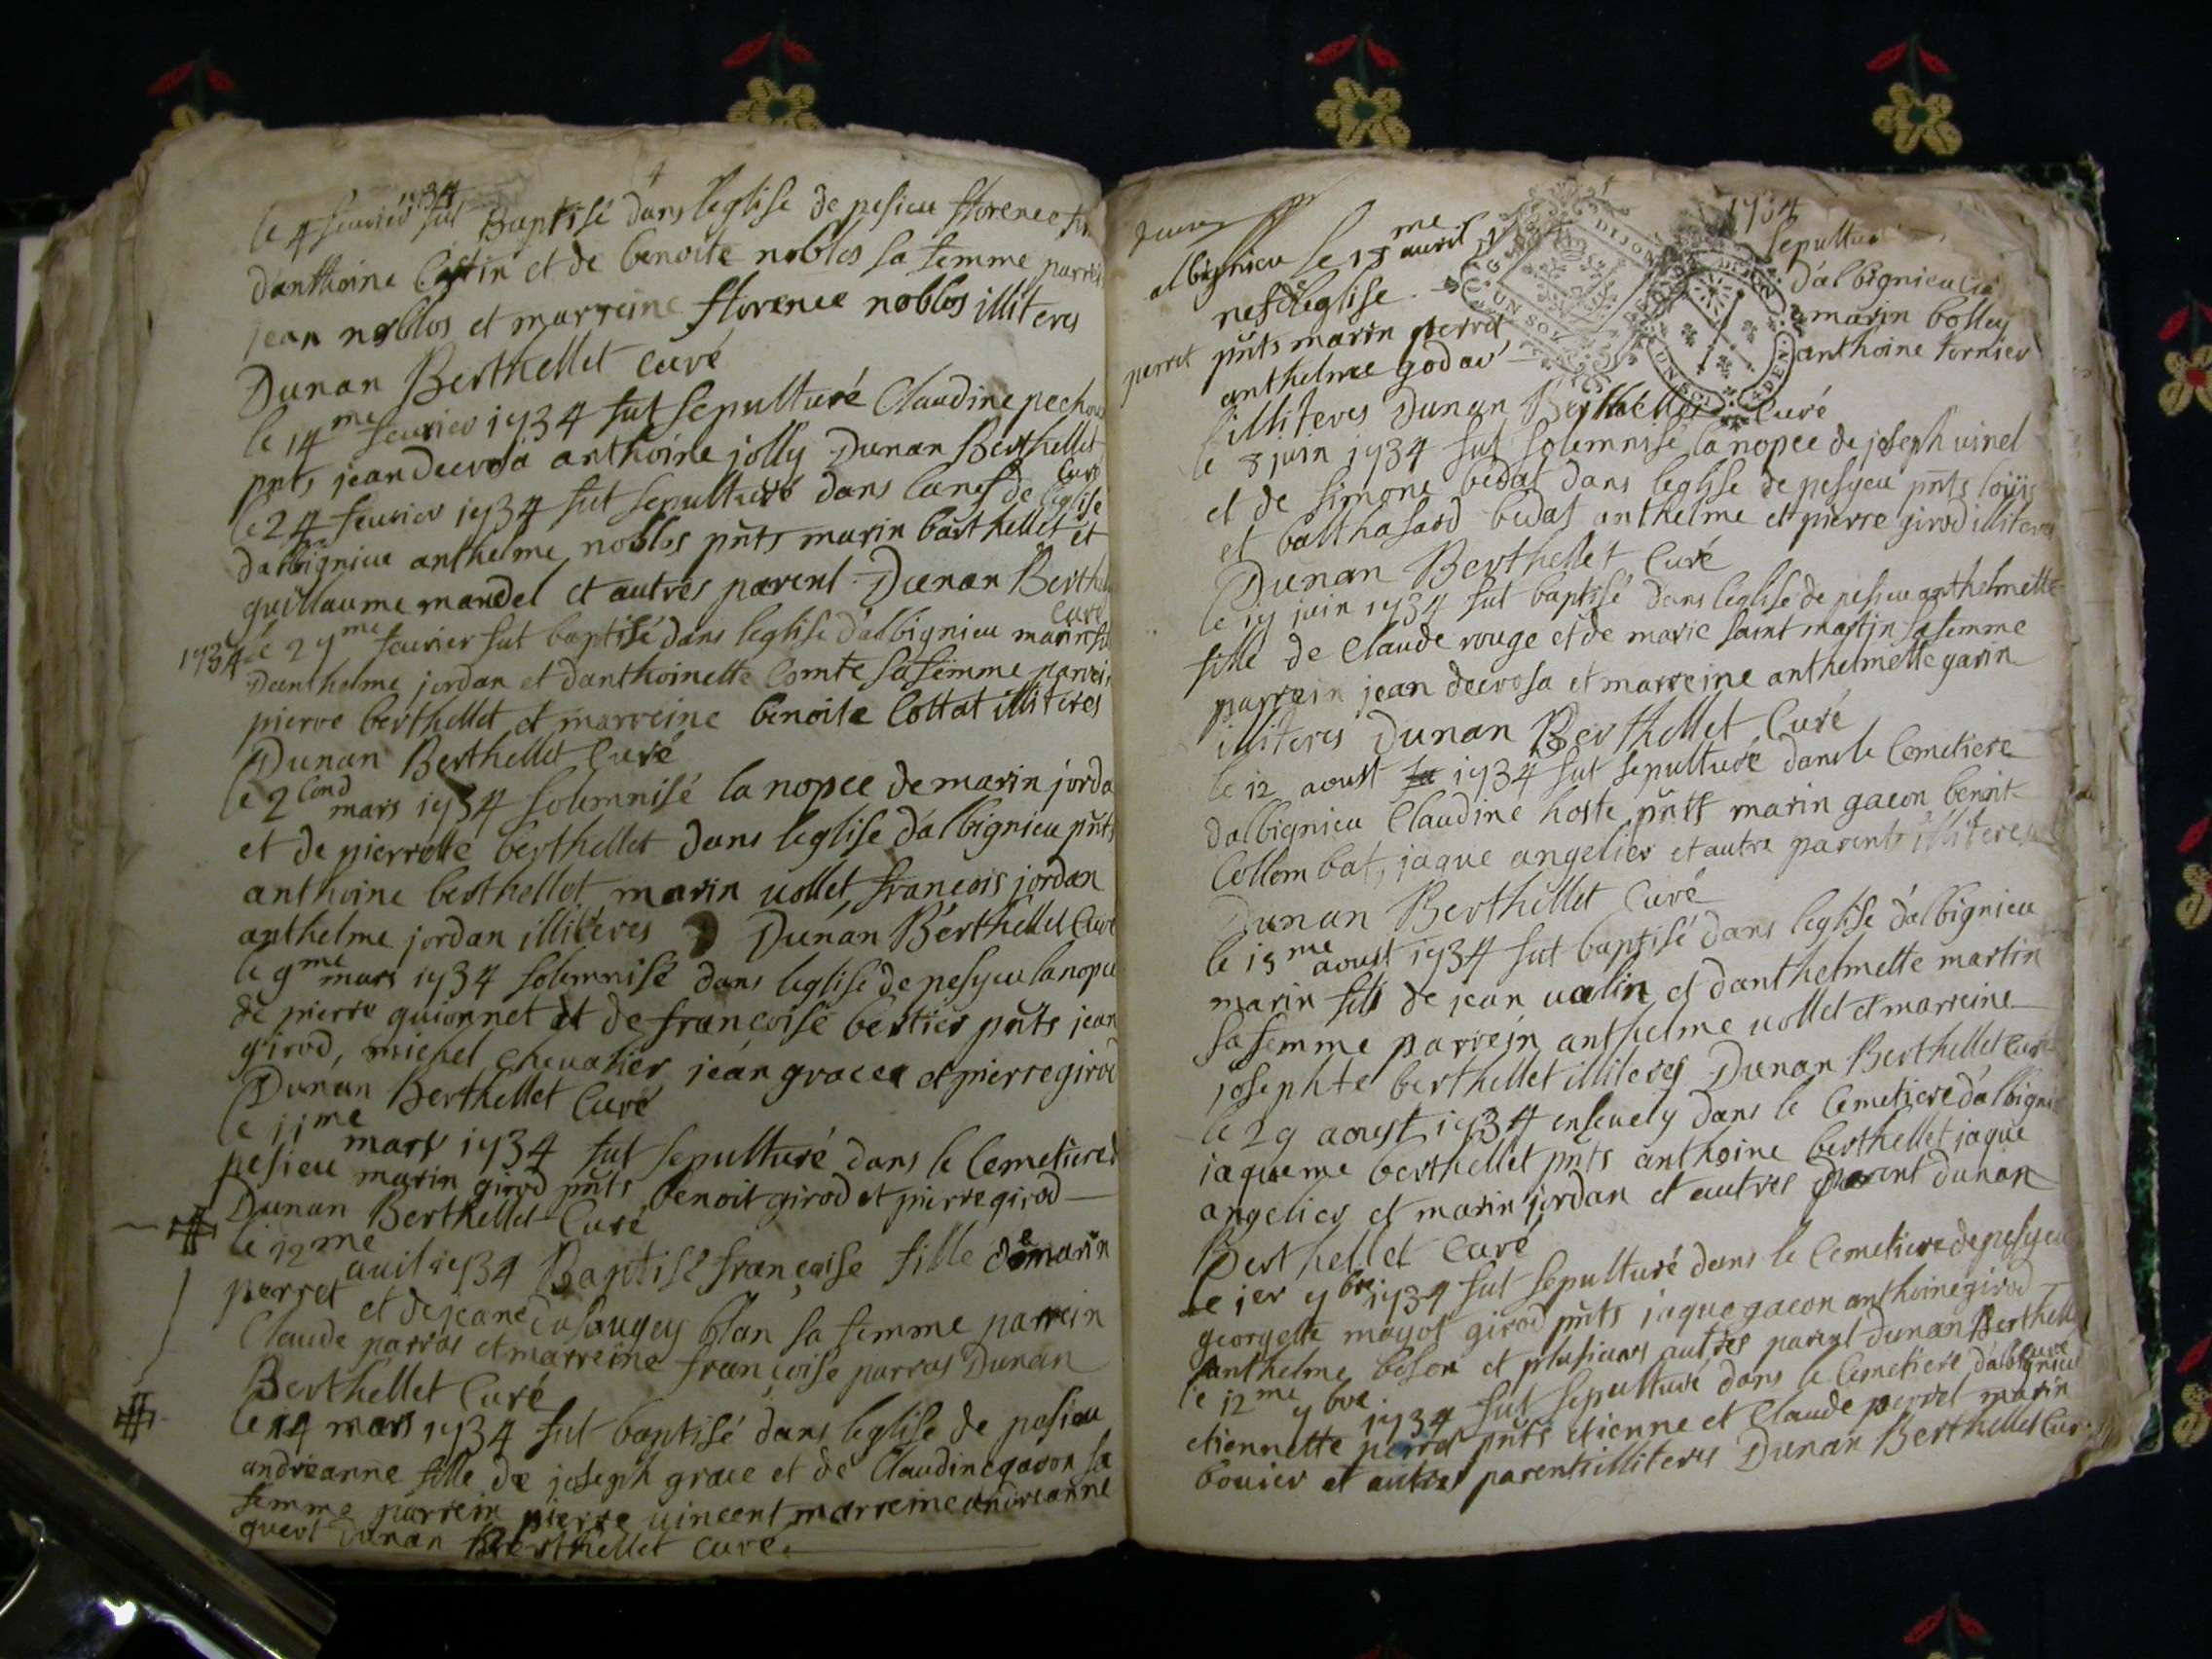 4
1734
le 4 feuriér fut Baptisé dans leglise de pesieu florence
danthoine Cottin et de benoite noblos sa femme parrei
jean noblos et marreine florence noblos illiteres
Dunan Berthellet curé
le 14me feurier 1734 fut sepulturé Claudine
pnts jean decrosa anthoine jolly Dunan Berthellet
Curé
le 24 feurier 1734 fut sepulturé dans la nef de leglise
dalbignieu anthelme noblos pnts marin barthellet et
guillaume mandel et autres parent Dunan Berthel
Curé
1734 le 27me feurier fut baptisé dans leglise dalbignieu marin
Danthelme jordan et danthoinette Comte sa femme parrei
pierre berthellet et marreine benoite Cottat illiteres
Dunan Berthellet Curé
le 2Cond mars 1734 solemnisé la nopce de marin jorda
et de pierrette berthellet dans leglise dalbignieu pnts
anthoine berthellet marin uollet francois jordan
anthelme jordan illiteres Dunan Berthellet Curé
le 9me mars 1734 solemnisé dans leglise de pesyeu la nopce
de pierre guionnet et de francoise bertier pnts jean
girod, michel cheualier jean gracea et pierre girod
Dunan Berthellet Curé
le 11me mars 1734 fut sepulturé dans le Cemetiere d
pesieu marin girod pnts benoit girod et pierre girod
Dunan Berthellet Curé
le 12me auil 1734 Baptisé françoise fille de marin
perret et de jeane blan sa femme parrein
Claude parras et marreine françoise parras Dunan
Berthellet Curé
le 14 mars 1734 fut baptisé dans leglise de pesieu
andreanne fille de joseph grace et de Claudine gacon sa
femme parrein pierre uincent marreine andreanne
Dunan Berthellet curé
1734
sepultur
albignieu le 18me auril
dalbignieu
nef de leglise
marin bolley
perret pnts marin perret
anthoine tornier
anthelme godar
illiteres Dunan Berthellet Curé
DIJON
UN SOL
le 8 juin 1734 fut solemnisé la nopce de joseph uinet
et de simone bedat dans leglise de pesyeu pnts loüis
et balthasard bedat anthelme et pierre girod illiteres
Dunan Berthellet Curé
le 17 juin 1734 fut baptisé dans leglise de pesieu anthelmette
fille de Claude rouge et de marie saint martin sa femme
parrein jean decrosa et marreine anthelmette garin
illiteres Dunan Berthellet Curé
le 12 aoust 1734 fut sepulturé dans le Cemetiere
dalbignieu Claudine hoste pnts marin gacon benoit
Collombat, jaque angelier et autre parents illiteres
Dunan Berthellet Curé
le 15me aoust 1734 fut baptisé dans leglise dalbignieu
marin fils de jean ualin et danthelmette martin
sa femme parrein anthelme uollet et marreine
josephte berthellet illiteres Dunan Berthellet Curé
le 29 aoust 1734 enseuely dans le Cemetiere dalbigni
jaqueme berthellet pnts anthoine berthellet jaque
angelier et marin jordan et autres parent dunan
Berthellet Curé
le 1er 7bre 1734 fut sepulturé dans le Cemetiere de pesyeu
georgette mayot girod pnts jaque gacon anthoine girod
anthelme beson et plusieurs autres parent Dunan Berthelle
curé
le 12me 7bre 1734 fut sepulturé dans le Cemetiere dalbignieu
etiennette perret pnts etienne et Claude perret marin
bouier et autres parents illiteres Dunan Berthellet Cur